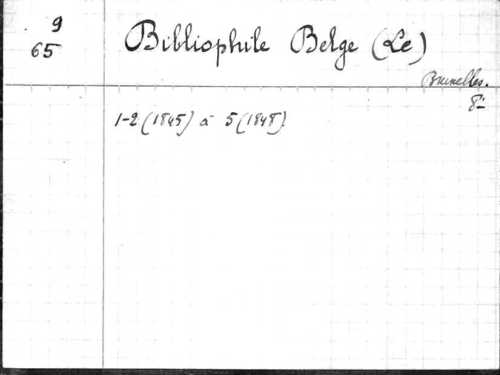 9
65
Bibliophile Belge (Le)
Bruxelles.
8º
1-2 (1845) à 5 (1848)